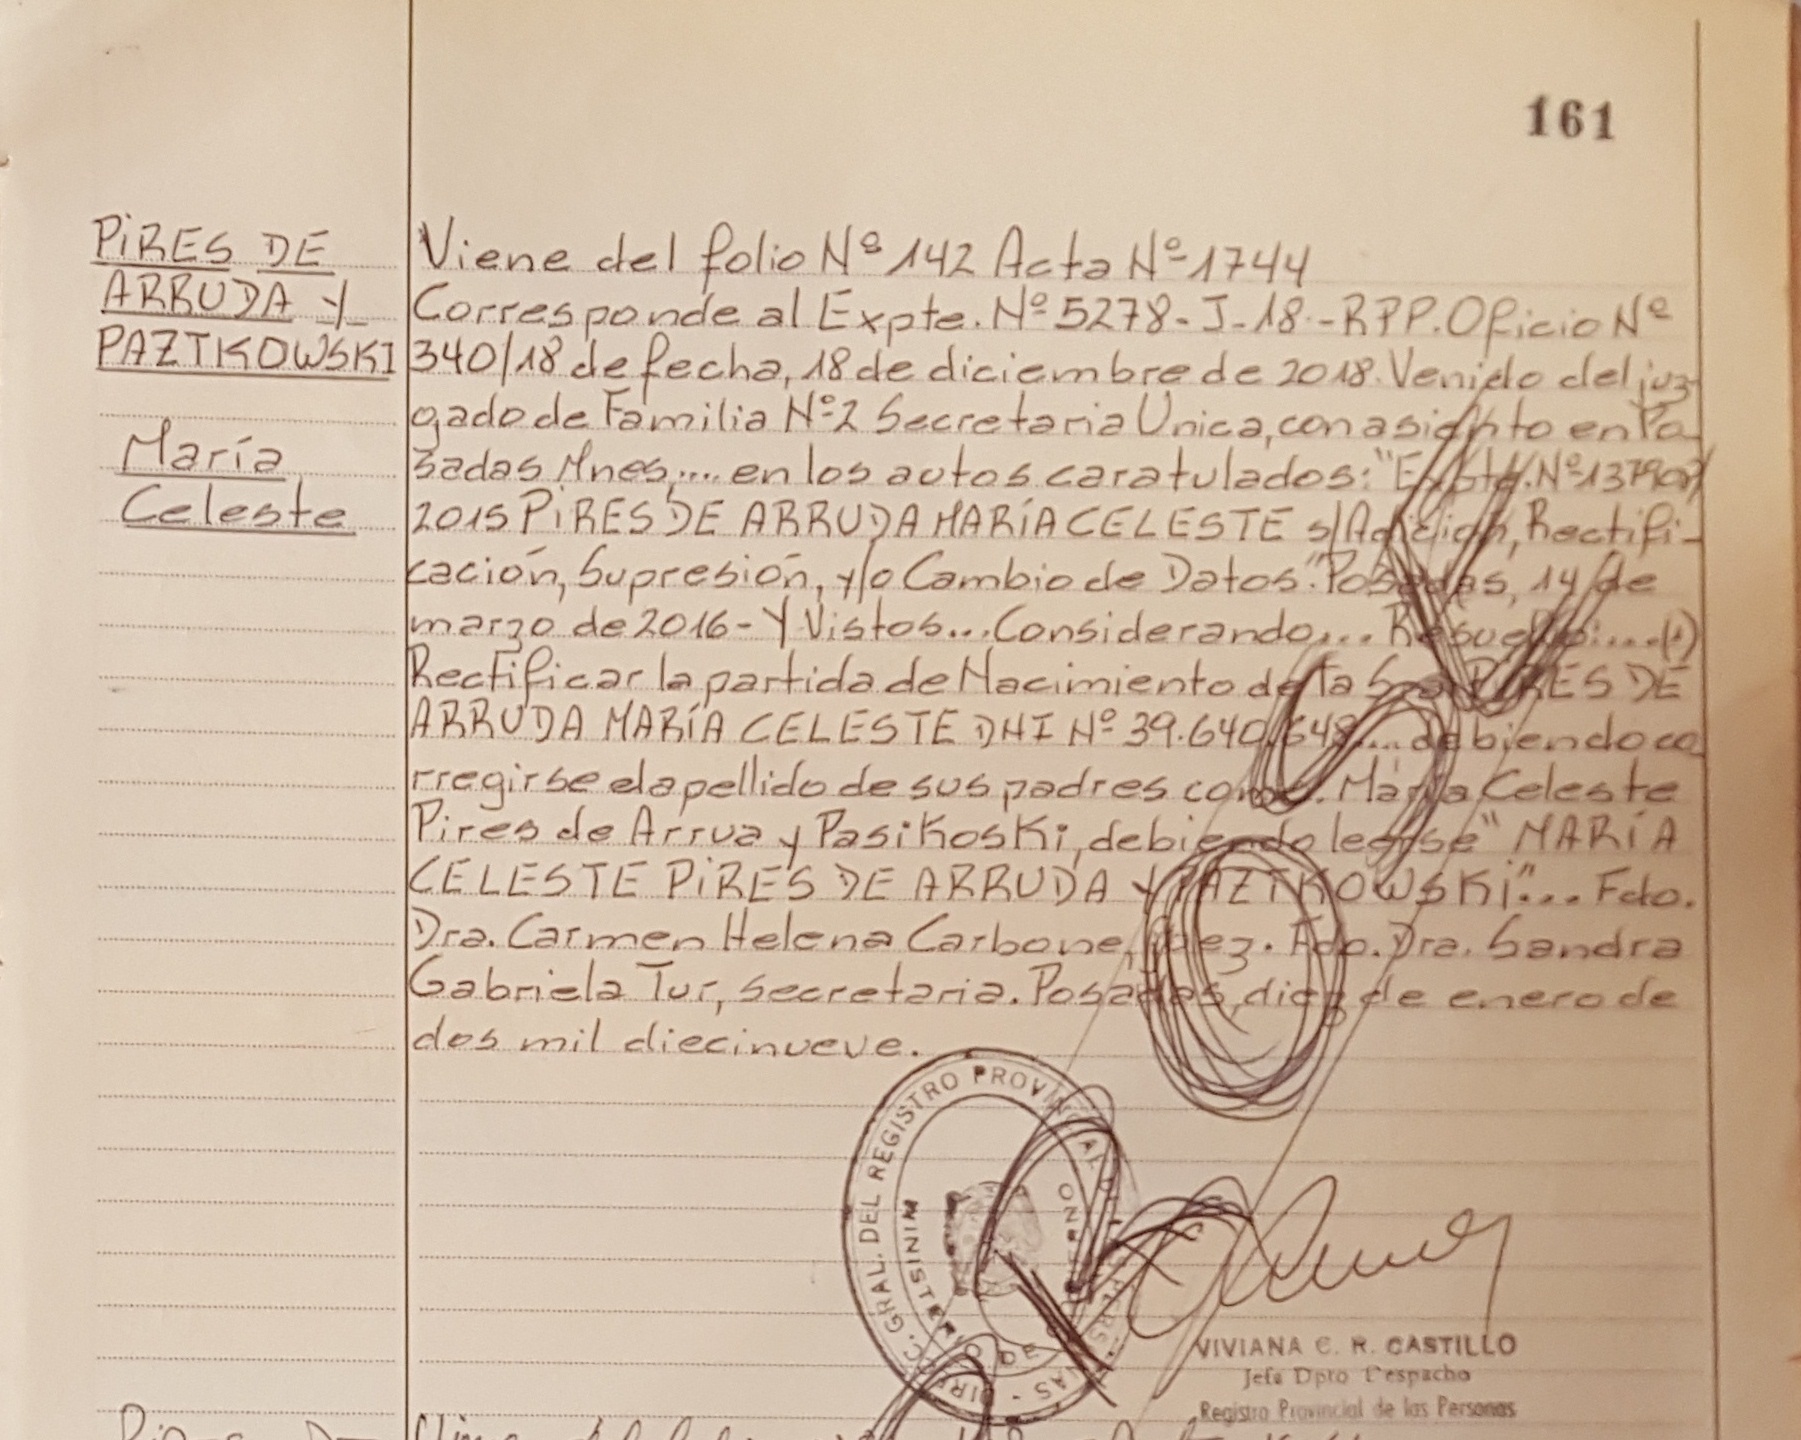 161
PIRES DE
ARRUDA Y
PAZTKOWSKI
María
Celeste
Viene del folio Nº 142 Acta Nº 1744
Corresponde al Expte. Nº 5278-J-18.-RPP. Oficio Nº
340/18 de fecha, 18 de diciembre de 2018. Venido del juz-
gado de Familia Nº 2 Secretaria Unica, con asiento en Po-
sadas Mnes,.... en los autos caratulados: "Expte. Nº
2015 PIRES DE ARRUDA MARÍA CELESTE s/ Adición, Rectifi-
cación, Supresión, y/o Cambio de Datos". Posadas, 14 de
marzo de 2016 - Y Vistos... Considerando... Resuelvo:....(1)
Rectificar la partida de Nacimiento de la Sra. PIRES DE
ARRUDA MARÍA CELESTE DNI Nº 39.640.648.... debiendo co
rregirse el apellido de sus padres como. María Celeste
Pires de Arrua y Pasikoski, debiendo leerse "MARÍA
CELESTE PIRES DE ARRUDA Y PAZTKOWSKI"... Fdo.
Dra. Carmen Helena Carbone, juez. Fdo. Dra. Sandra
Gabriela Tur, secretaria. Posadas, diez de enero de
dos mil diecinueve.
GRAL. DEL REGISTRO PROVINCIAL
VIVIANA C. R. CASTILLO
Jefa Dpto Despacho
Registro Provincial de las Personas